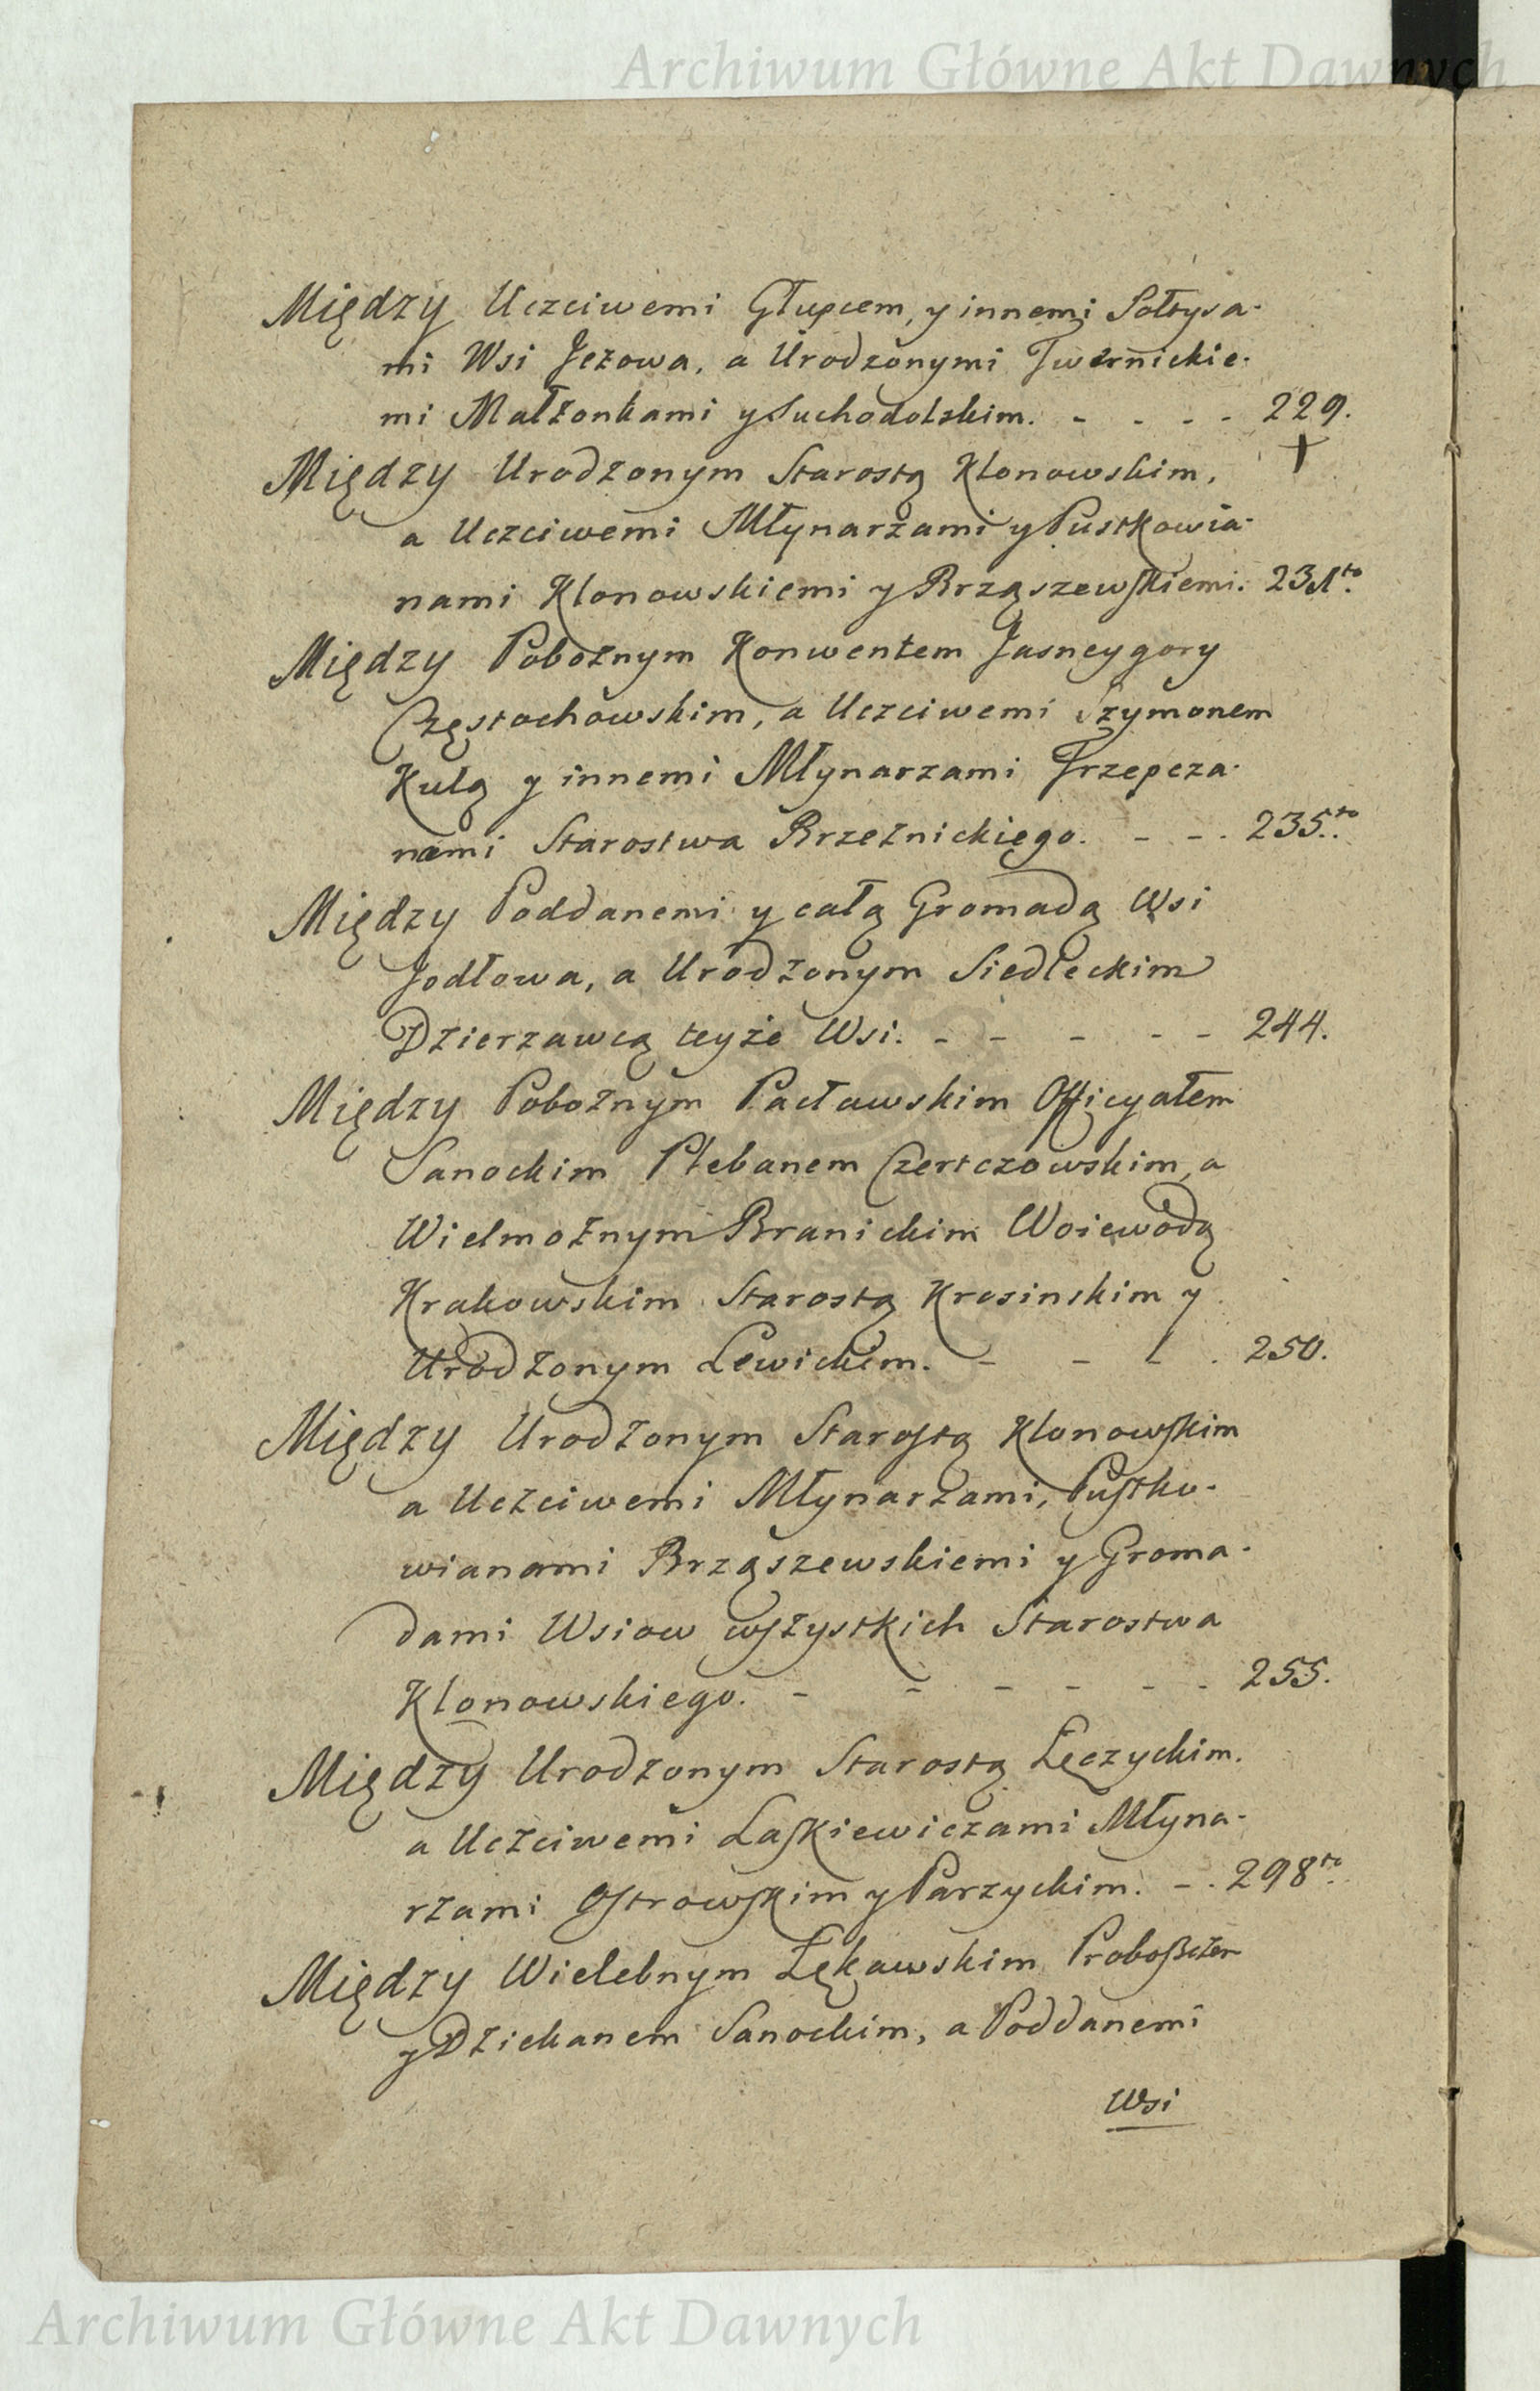 Archiwum Główne Akt Dawnych
Między Uczciwemi Głupcem, y innemi Sołtysa-
mi Wsi Jeżowa, a Urodzonymi Twernickie-
mi Małżonkami y Suchodolskim. - - - - 229.
Między Urodzonym Starostą Klonowskim, +
a Uczciwemi Młynarzami y Pustkowia-
nami Klonowskiemi y Brząszewskiemi. 231to.
Między Pobożnym Konwentem Jasneygory
Częstochowskim, a Uczciwemi Szymonem
Kulą y innemi Młynarzami Trzepcza-
nami Starostwa Brzeżnickiego. - - . 235to.
Między Poddanemi y całą Gromadą Wsi
Jodłowa, a Urodzonym Siedleckim
Dzierzawcą teyże Wsi. - - - - - 244.
Między Pobożnym Pacławskim Officyałem
Sanockim Plebanem Czertczowskim, a
Wielmożnym Branickim Woiewodą
Krakowskim Starostą Krosinskim y
Urodzonym Lewickim. - - - . 250.
Między Urodzonym Starostą Klonowskim
a Uczciwemi Młynarzami, Pustko-
wianami Brząszewskiemi y Groma-
dami Wsiow wszystkich Starostwa
Klonowskiego. - - - - - . 255.
Między Urodzonym Starostą Łęczyckim.
a Uczciwemi Laskiewiczami Młyna-
rzami Ostrowskim y Parzyckim. - . 298to.
Między Wielebnym Łękawskim Proboszczem
y Dziekanem Sanockim, a Poddanemi
Wsi
Archiwum Główne Akt Dawnych